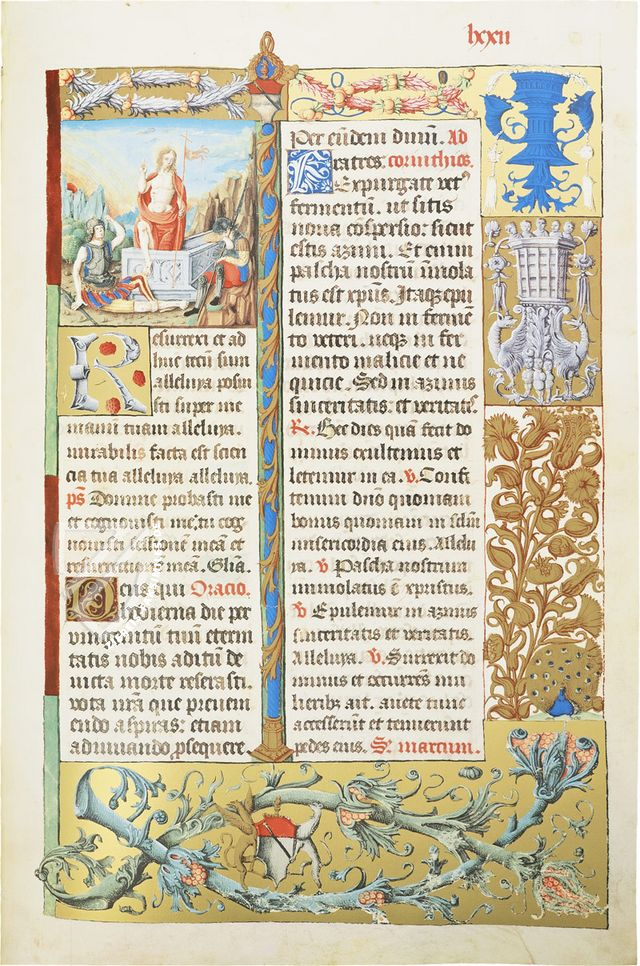 lxxii
Resurrexi et ad
huc tecũ sum
alleluya posui
sti super me
manũ tuam alleluya.
mirabilis facta est scien
cia tua alleluya alleluya.
ps̃ Domine probasti me
et cognouisti me: tu cog
nouisti sessionẽ meã et
resurrectionẽ meã. Glia.
Deus qui Oracio.
hodierna die per
vnigenitũ tuũ eterni
tatis nobis aditũ de
uicta morte reserasti.
vota nr̃a que preueni
endo aspiras: etiam
adiuuando ꝓsequere.
Per eũdem dnm̃. Ad
Fratres: corinthios.
Expurgate vet9
fermentũ. ut sitis
noua cõspersio: sicut
estis azimi. Et enim
pascha nostrũ ĩmola
tus est xpũs. Itaqz epu
lemur. Non in fermẽ
to veteri. neqz in fer
mento malicie et ne
quicie. Sed in azimis
sinceritatis: et veritatis.
Rẽ. Hec dies quã fecit do
minus exultemus et
letemur in ea. v. Confi
temini dnõ quoniam
bonus quoniam in sclm̃
misericordia eius. Allelu
ya. v Pascha nostrum
immolatus ẽ xpristus.
v Epulemur in azimis
sinceritatis et veritatis.
Alleluya. v. Surrexit do
minus et occurrẽs mu
lieribz ait. auete tunc
accesserũt et tenuerunt
pedes eius. Sm̃. marcum.